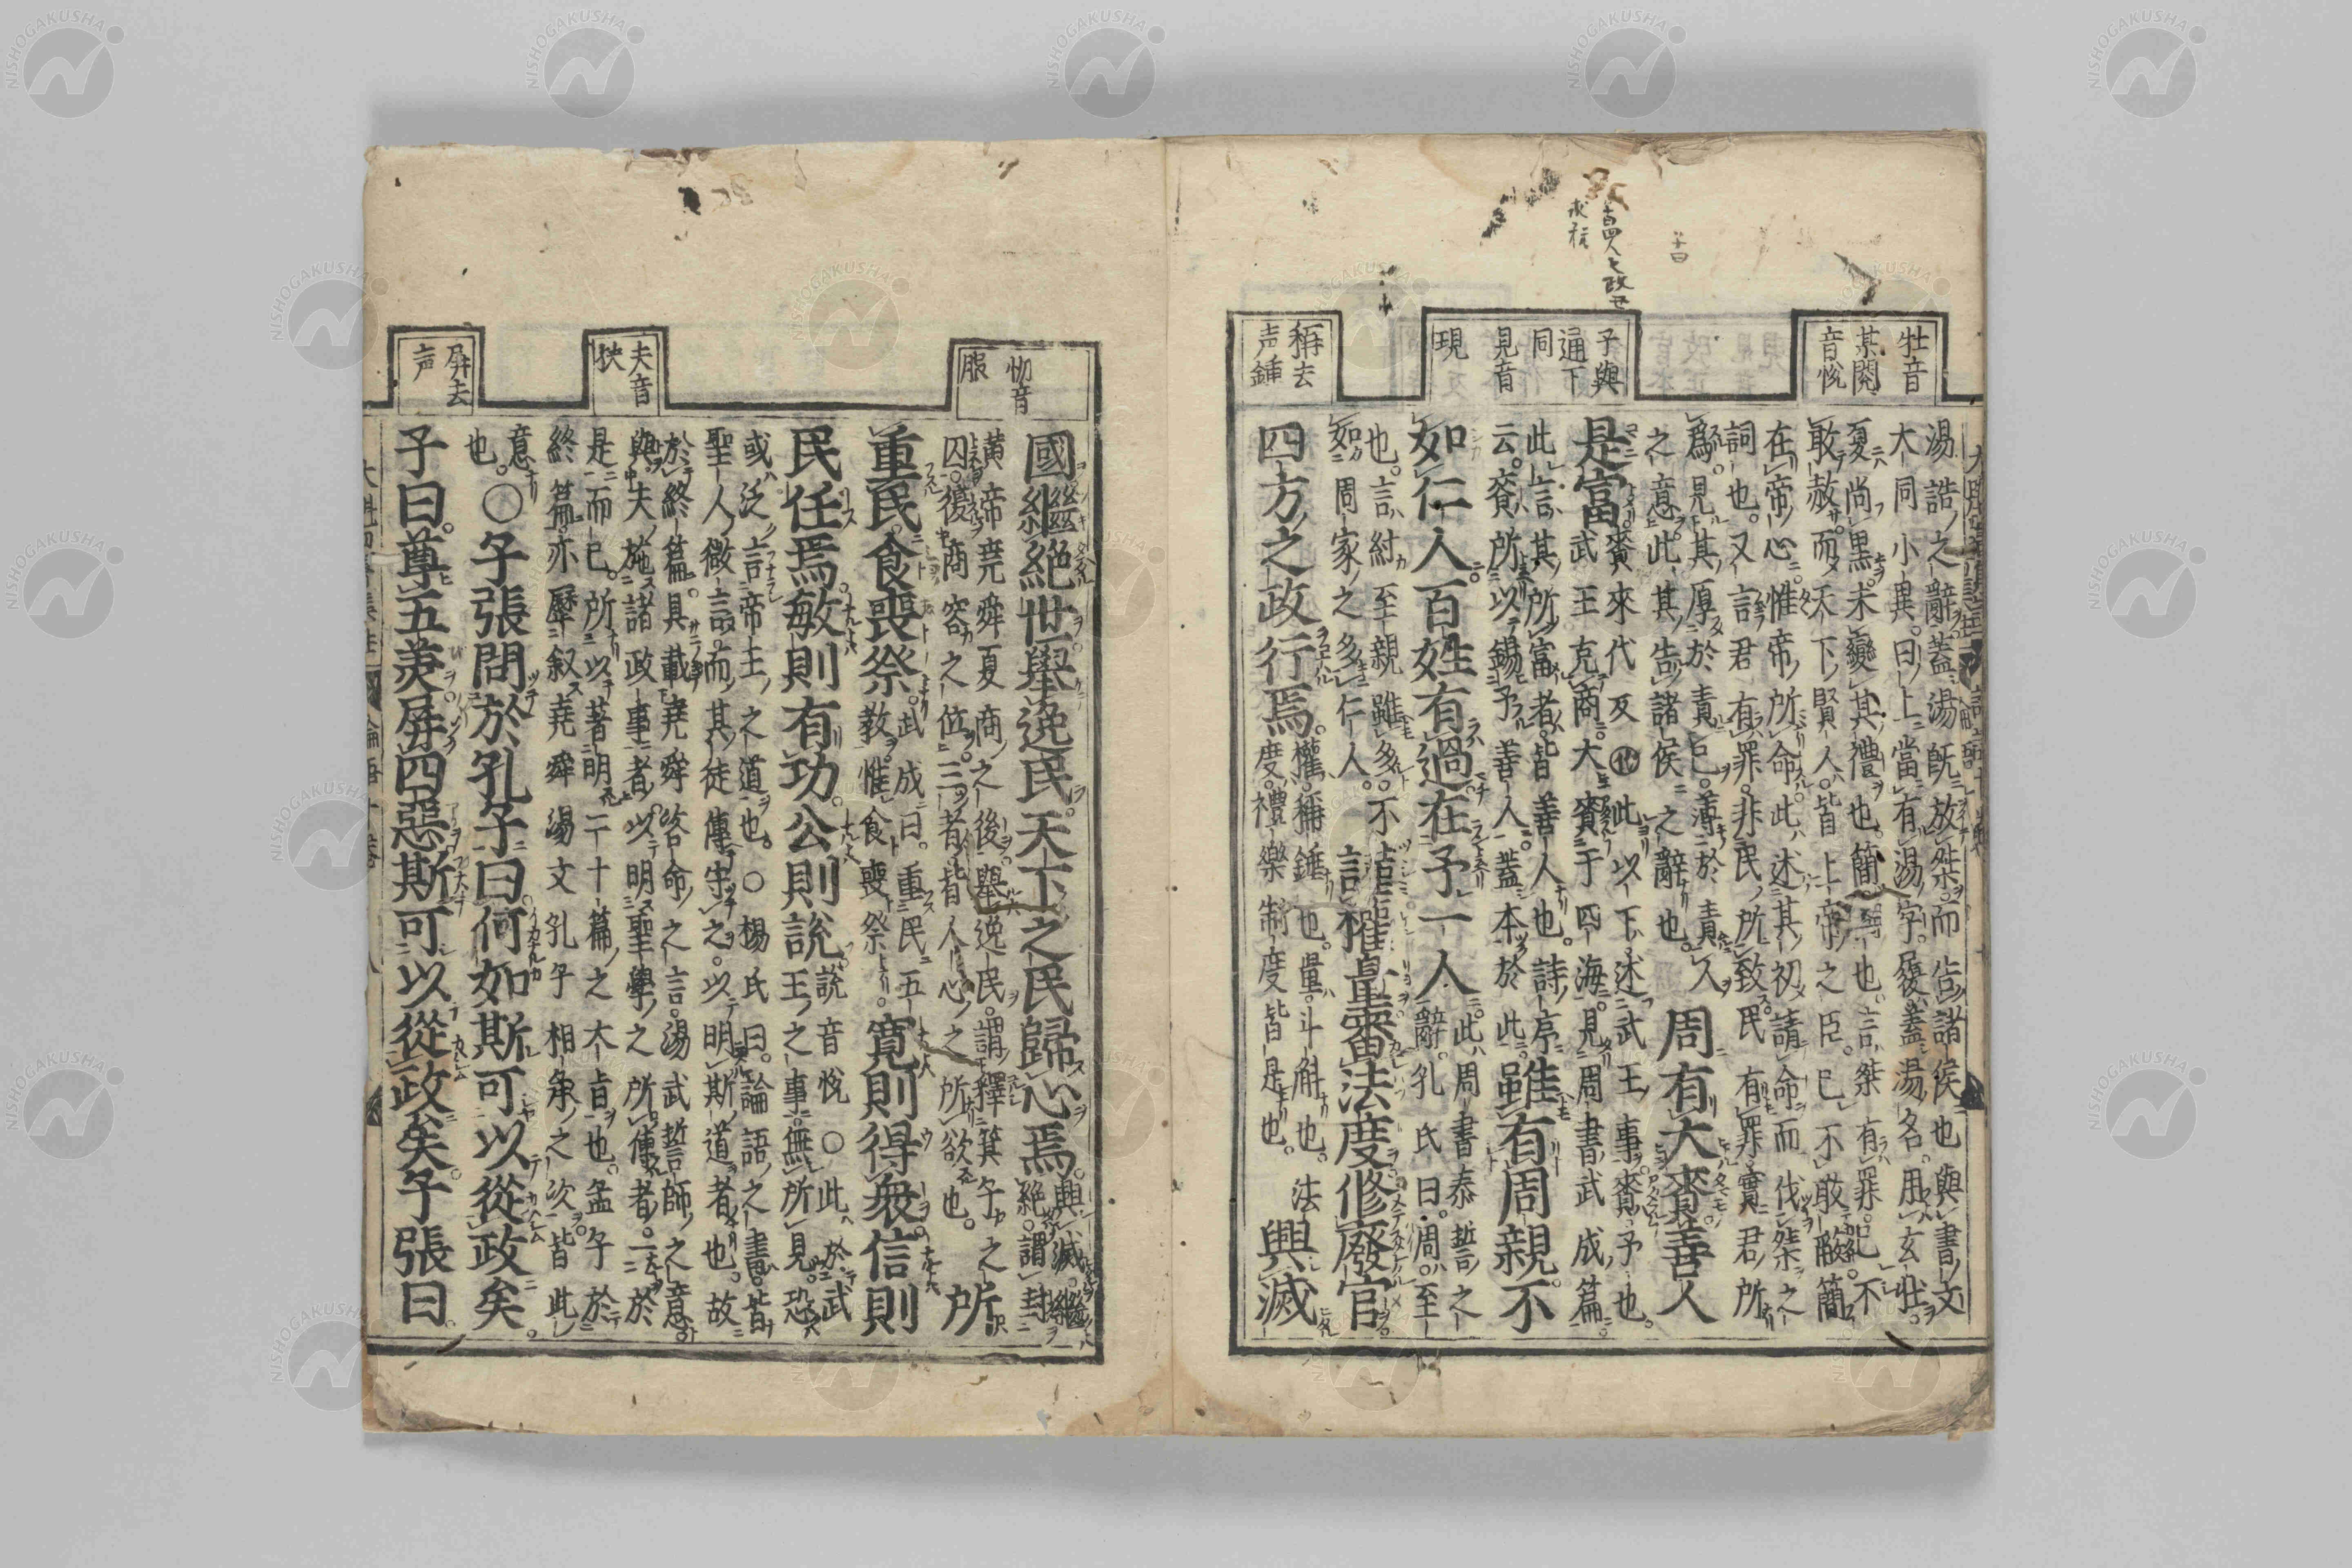 牡音
某閱
音悅
子與
通下
同
見音
現
稱去
声錘
湯誥之辭蓋湯旣放桀而告諸侯也與書文
大同小異曰上當有湯字履蓋湯名用玄牡
夏尚黒未變其禮也簡閱也言桀有罪已不
敢赦而天下賢人皆上帝之臣已不敢蔽簡
在帝心惟帝所命此述其初請命而伐桀之
詞也又言君有罪非民所致民有罪實君所
爲見其厚於責已薄於責人
之意此其告諸侯之辭也
周有大賚善人
是富
賚來代反 此以下述武王事賚予也
武王克商大賚于四海見周書武成篇
此言其所富者皆善人也詩序
云賚所以錫予善人蓋本於此
雖有周親不
如仁人百姓有過在予一人
此周書泰誓之
辭孔氏曰周至
也言紂至親雖多不
如周家之多仁人
謹權量審法度修廢官
四方之政行焉
權稱錘也量斗斛也法
度禮樂制度皆是也
興滅
物音
服
夫音
扶
屛去
声
國繼絶世擧逸民天下之民歸心焉
興滅繼
絶謂封
黄帝堯舜夏商之後擧逸民謂釋箕子之
囚復商容之位三者皆人心之所欲也
所
重民食喪祭
武成曰重民五
教惟食喪祭
寛則得衆信則
民任焉敏則有功公則説
説音悅○此於武
王之事無所見恐
或泛言帝王之道也○楊氏曰論語之書皆
聖人微言而其徒傳守之以明斯道者也故
於終篇具載堯舜咨命之言湯武誓師之意
與夫施諸政事者以明聖學之所傳者一於
是而已所以著明二十篇之大旨也孟子於
終篇亦歷叙堯舜湯文孔子相承之次皆此
意
也○子張問於孔子曰何如斯可以從政矣
子曰尊五美屛四惡斯可以從政矣子張曰